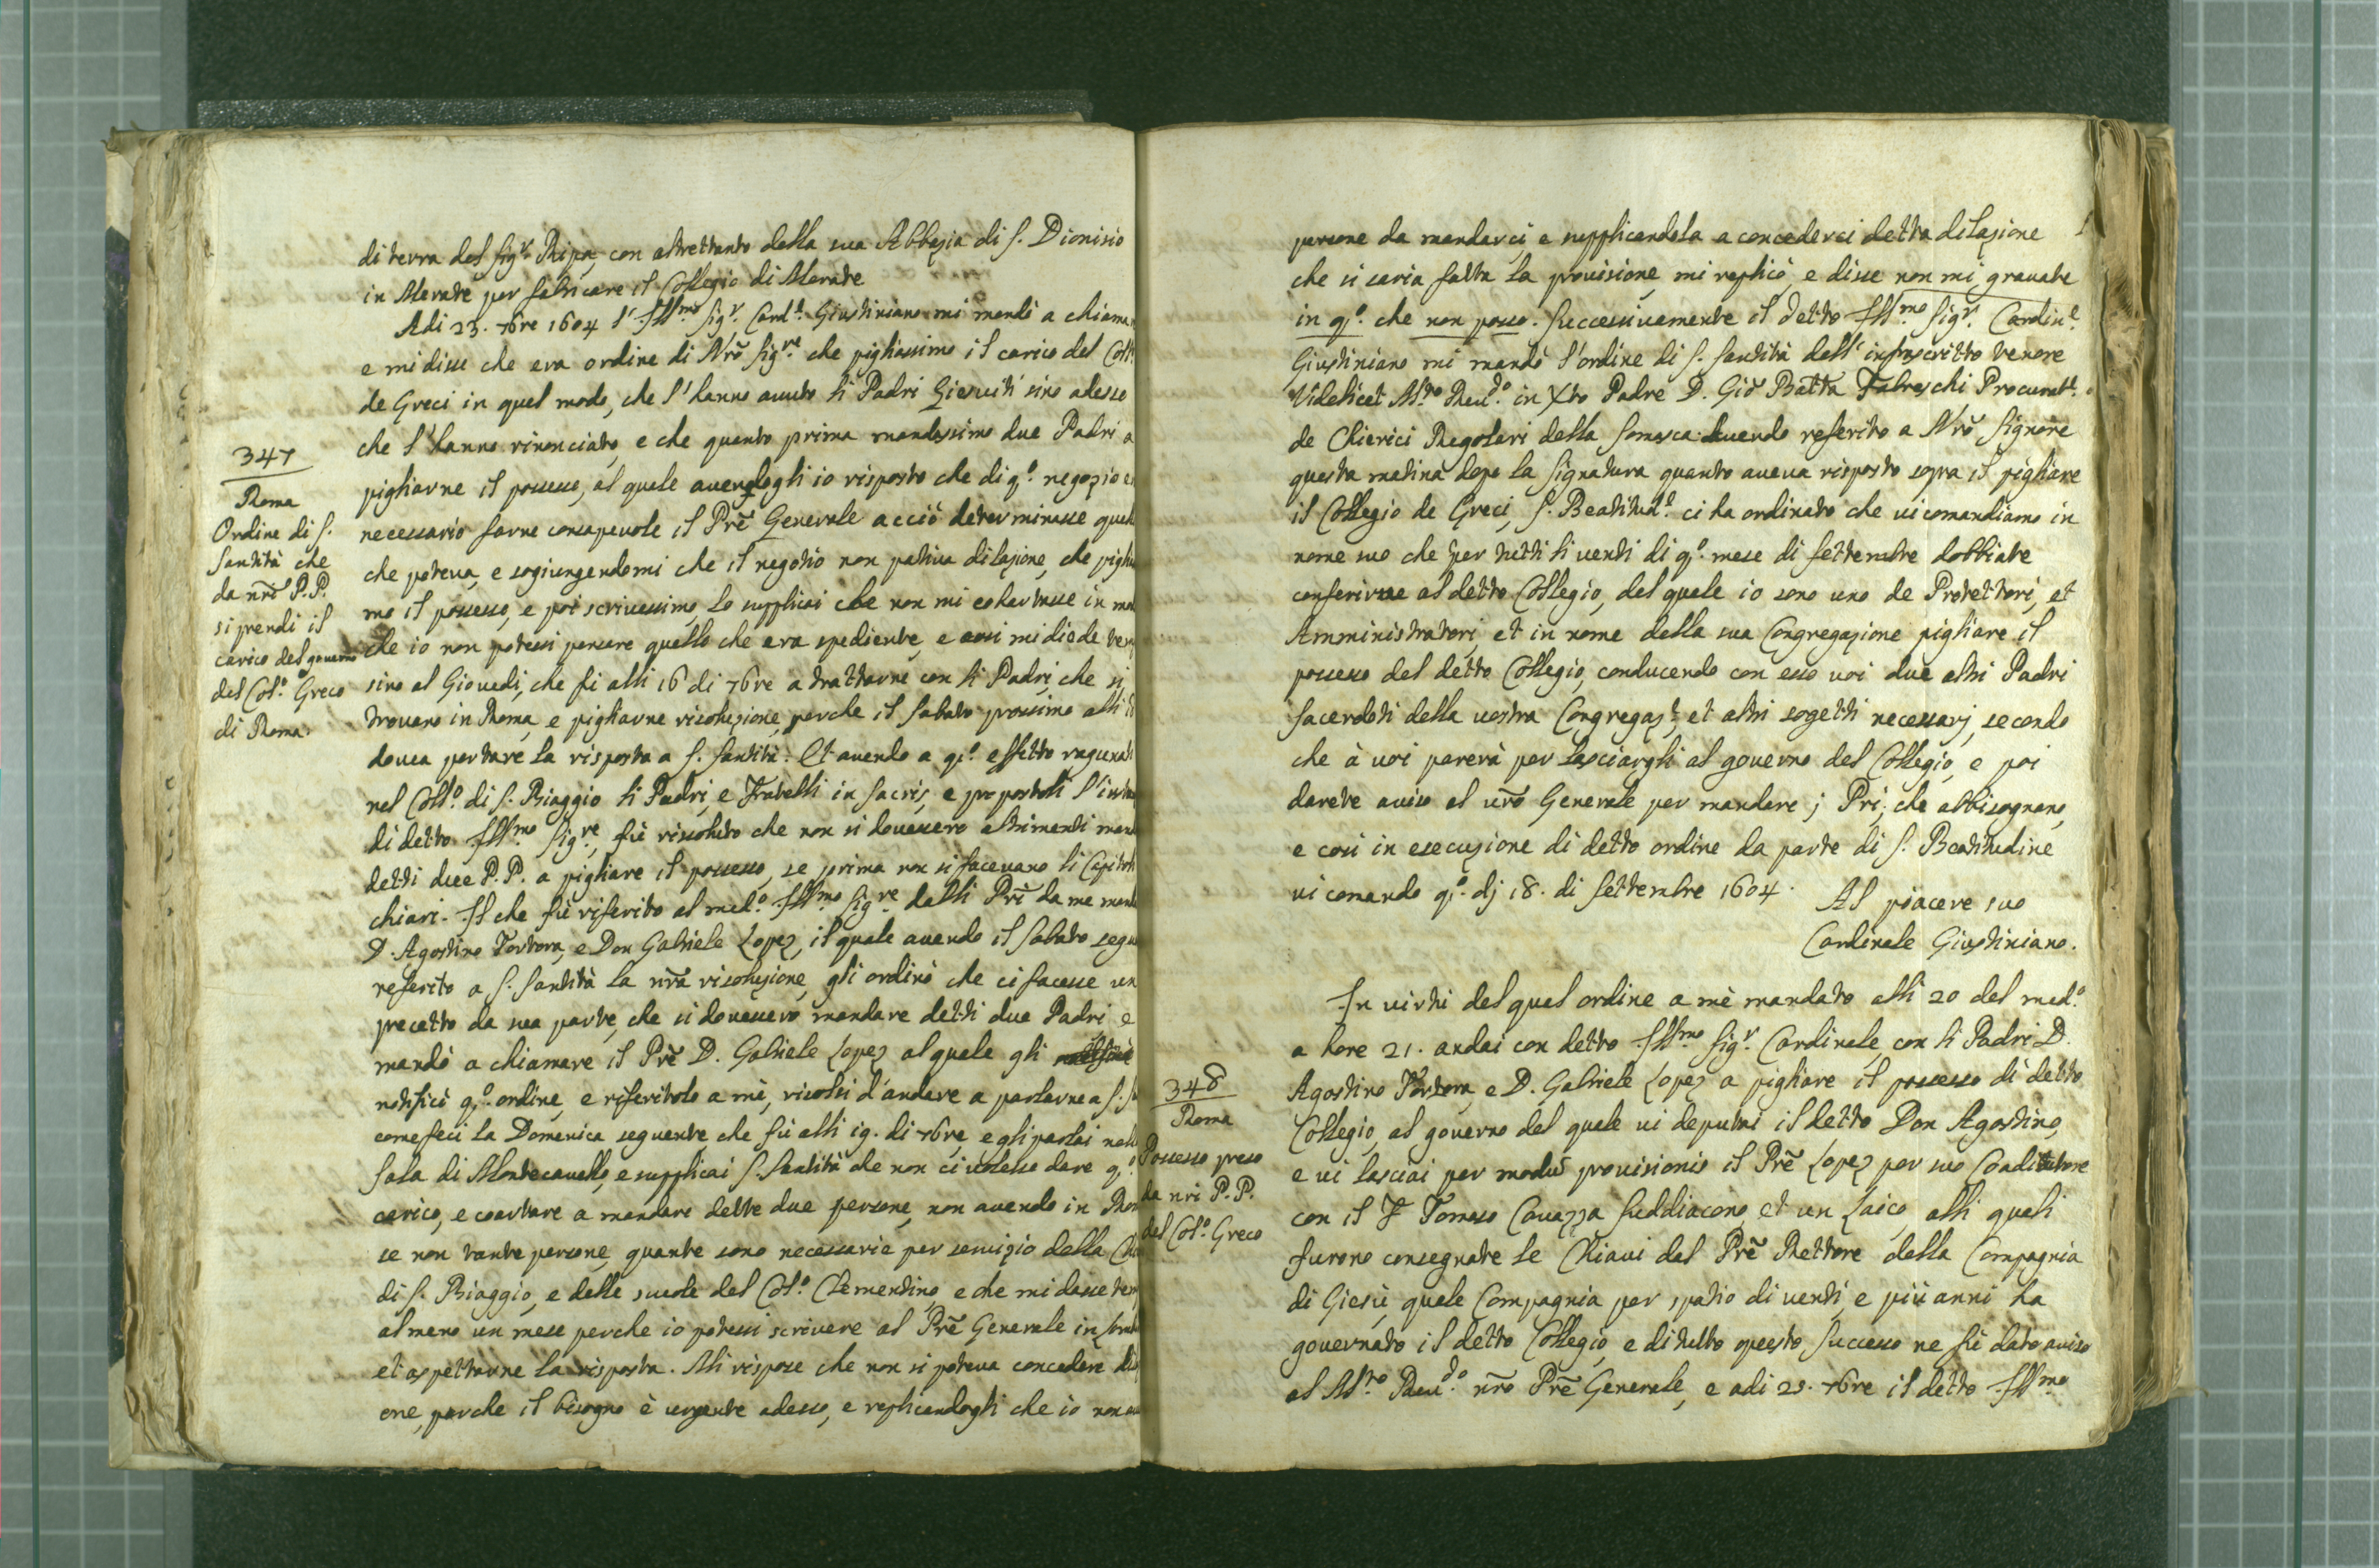 di terra del Sigr. Ripa, con altrettanto della sua Abbazia di S. Dionisio
in Merate per fabricare il Collegio di Merate
Adi 23. 7bre 1604 l' Illmo Sigr. Card.l Giustiniano mi mandò a chiamar
e mi disse che era ordine di Nrō Sigre. che pigliassimo il carico del Coll.
de Greci in quel modo, che l'hanno auuto li Padri Giesuiti sino adesso
che l'hanno rinonciato, e che quanto prima mandassimo due Padri a
pigliarne il possesso, al quale auendogli io risposto che di q.o negozio e
necessario farne consapeuole il Prē Generale acciò determinasse quel
che poteua, e sogiungendomi che il negotio non patiua dilazione, che piglia
mo il possesso, e poi scriuessimo, lo supplicai che non mi cohartasse in mo
che io non potessi pensare quello che era spediente, e così mi diede tem
sino al Giouedi, che fù alli 16 di 7bre a trattarne con li Padri, che si
trouano in Roma, e pigliarne risoluzione, perche il Sabato prossimo alli
douea portare la risposta a S. Santità. Et auendo a q.o effetto ragunati
nel Coll.o di S. Biaggio li Padri, e Fratelli in Sacris, e propostoli l'inten
di detto Illmo Sigre, fù rissoluto che non si douessero altrimenti mand
detti due P.P. a pigliare il possesso, se prima non si faceuano li Capitoli
chiari. Il che fù riferito al med.o Illmo Sigre dalli Pri da me mand
D. Agostino Tortora, e Don Gabriele Lopez, il quale auendo il Sabato segu
referito a S. Santità la nr̄a risoluzione, gli ordinò che ci facesse un
precetto da sua parte, che si douessero mandare detti due Padri, e
mandò a chiamare il Prē D. Gabriele Lopez al quale gli
notificò q.o ordine, e riferitolo a mè, risolsi d'andare a parlarne a S. S
come feci la Domenica seguente che fù alli 19. di 7bre, e gli parlai nell
Sala di Montecauallo, e supplicai S. Santità che non ci uolesse dare q.o
carico, e coartare a mandare dette due persone, non auendo in Rom
se non tante persone, quante sono necessarie per seruizio della Chi
di S. Biaggio, e delle scuole del Col.o Clementino, e che mi dasse tem
almeno un mese perche io potessi scriuere al Prē Generale in Lomb
et aspettarne la risposta. Mi rispose che non si poteua concedere di
one, perche il bisogno è urgente adesso, e replicandogli che io non au
347
Roma
Ordine di S.
Santità che
da nrī P.P.
si prendi il
carico del gouerno
del Col.o Greco
di Roma.
persone da mandarci, e supplicandola a concederci detta dilazione
che si saria fatta la prouisione, mi replicò, e disse non mi grauate
in q.o che non posso. Successiuamente il detto Illmo Sigr. Cardinl.
Giustiniano mi mandò l'ordine di S. Santità dell'infrascritto tenore
Videlicet Mto Reudo. in Xto Padre D. Giō Batta Fabreschi Procurat.
de Chierici Regolari della Somasca. Auendo referito a Nrō Signore
questa matina dopo la Signatura quanto aueua risposto sopra il pigliare
il Collegio de Greci, S. Beatitud.e ci ha ordinato che ui comandiamo in
nome suo che per tutti li uenti di q.o mese di Settembre dobbiate
conferirue al detto Collegio, del quale io sono uno de Protettori, et
Amministratori, et in nome della sua Congregazione pigliare il
possesso del detto Collegio, conducendo con esso uoi due altri Padri
Sacerdoti della uostra Congregaz.e et altri sogetti necessarj, secondo
che à uoi parerà per lasciargli al gouerno del Collegio, e poi
darete auiso al urō Generale per mandare j Pri, che abbisognano,
e così in esecuzione di detto ordine da parte di S. Beatitudine
ui comando q.o dj 18. di Settembre 1604.
Al piacere suo
Cardinale Giustiniano.
In uirtù del qual ordine a mè mandato alli 20 del med.o
a hore 21. andai con detto Illmo Sigr. Cardinale, con li Padri D.
Agostino Tortora, e D. Gabriele Lopez a pigliare il possesso di detto
Collegio, al gouerno del quale ui deputai il detto Don Agostino,
e ui lasciai per modū prouisionis il Prē Lopez per suo Coaditutore
con il F Tomaso Cauazza Suddiacono, et un Laico, alli quali
furono consegnate le Chiaui dal Prē Rettore della Compagnia
di Giesù, quale Compagnia per spatio di uenti, e più anni ha
gouernato il detto Collegio, e di tutto questo successo ne fù dato auiso
al Mto Reudo. nrō Prē Generale, e adi 29. 7bre il detto Illmo
348
Roma
Possesso preso
da nri P.P.
del Col.o Greco